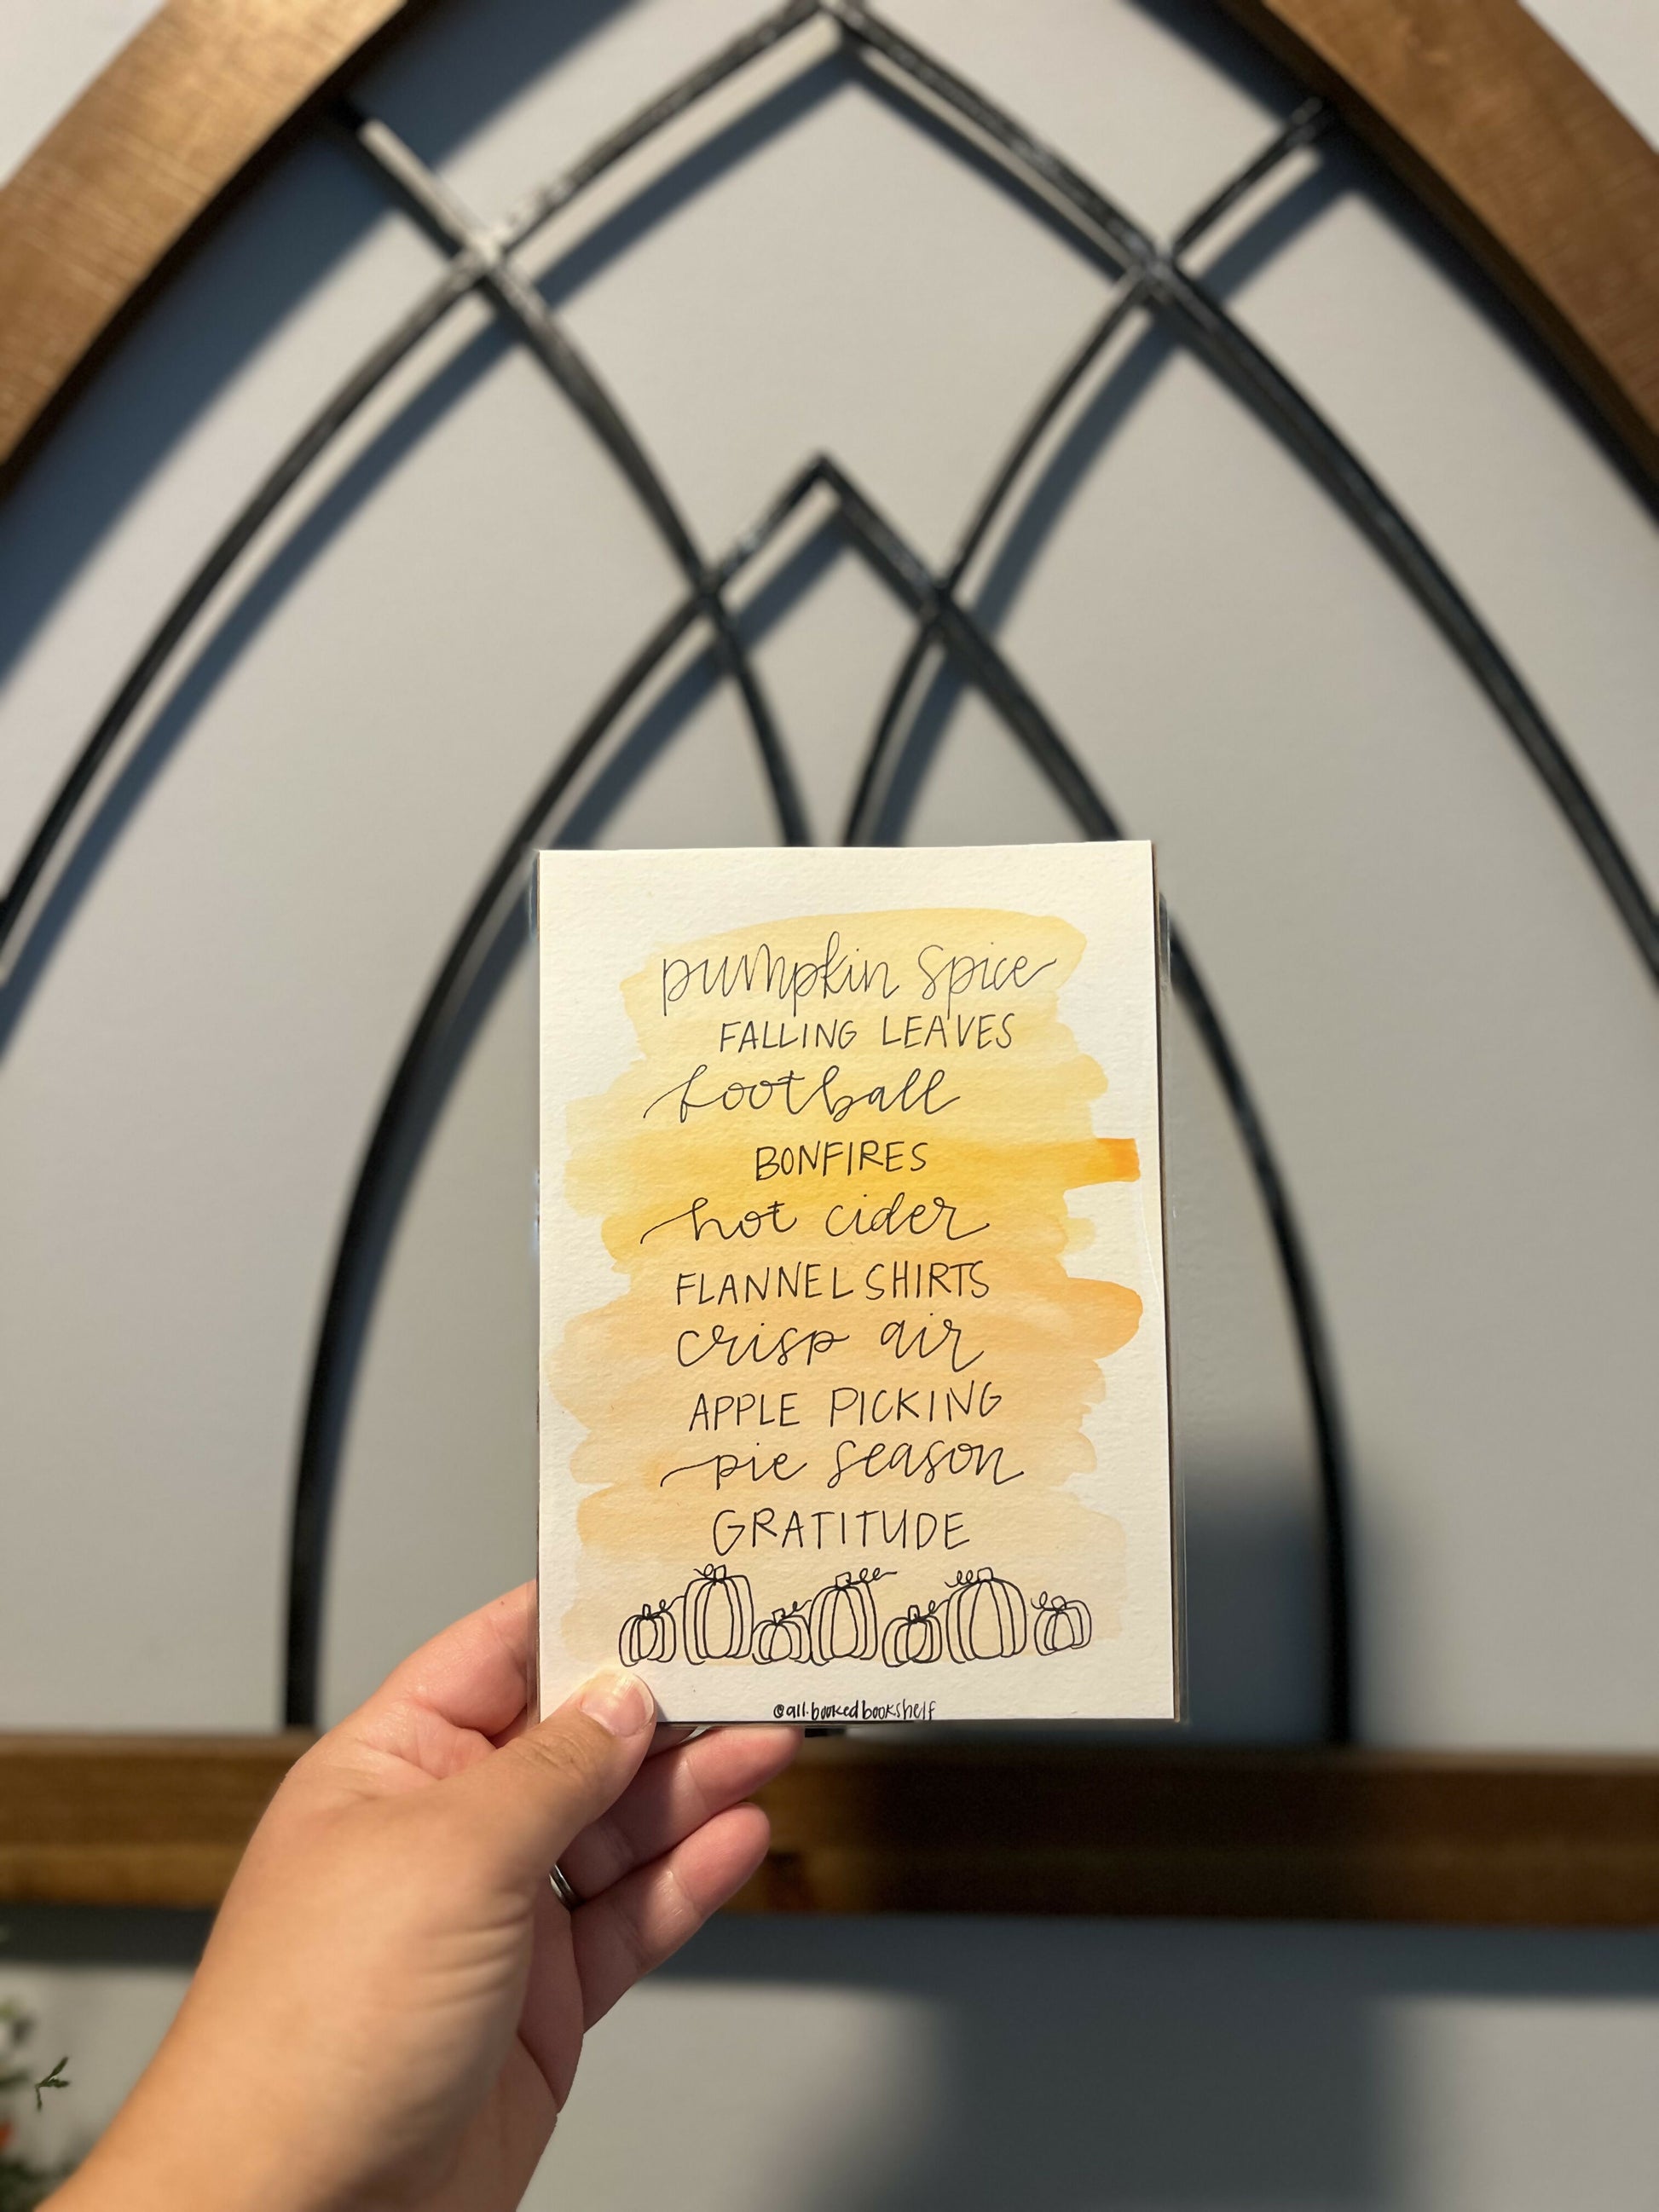 pumpkin spice
FALLING LEAVES
football
BONFIRES
hot cider
FLANNEL SHIRTS
crisp air
APPLE PICKING
pie season
GRATITUDE
@all.bookedbookshelf